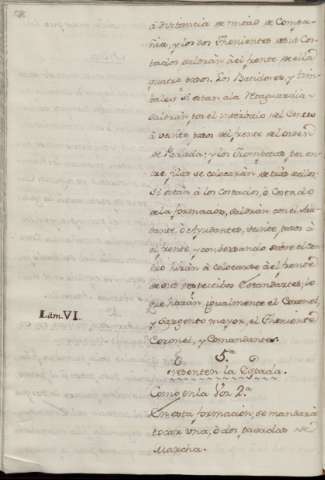 á distancia de mitad de Compa-
ñia, y los dos Thenientes de los Cos-
tados saldrán á el frente de ella
quatro pasos. Los Batidores, y Tim-
bales si estan a la Retaguardia
saldrán por el intérvalo del Centro
á veinte pasos del frente del orden
de Parada; y los Trompetas por en-
tre filas se colocarán detrás de ellos.
Si están á los Costados, ó Costado
de la formacion, saldrán con el Aiu-
dante, ó Ayudantes, veinte pasos á
el frente, y conversando sobre el cen-
tro hirán á colocarse á el frente
de sus respectivos Estandartes, lo
que harán igualmente el Coronel,
y Sargento mayor, el Theniente
Coronel, y Comandantes.
Lám. VI.
5.ª
Presenten la Espada.
Como en la Voz 2.ª
En esta formacion, se mandará
tocar una, ó dos tocatas de
Marcha.